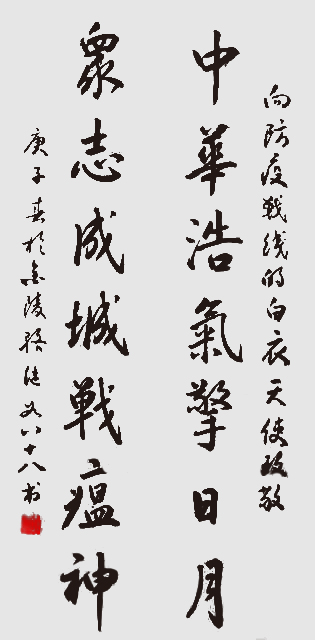 向防疫战线的白衣天使致敬
中華浩氣擎日月
眾志成城戰瘟神
庚子春於金陵 八十八书